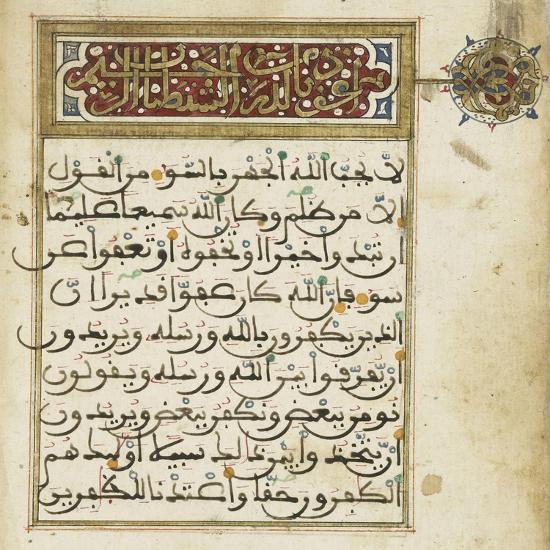 أعوذ بالله من الشيطان الرجيم
لا يحب الله الجهر بالسوء من القول
الا من ظلم وكان الله سميعا عليما
ان تبدوا خيرا او تخفوه او تعفوا عن
سوء فان الله كان عفوا قديرا ان
الذين يكفرون بالله ورسله ويريدون
ان يفرقوا بين الله ورسله ويقولون
نومن ببعض ونكفر ببعض ويريدون
ان يتخذوا بين ذلك سبيلا اولئك هم
الكفرون حقا واعتدنا للكفرين